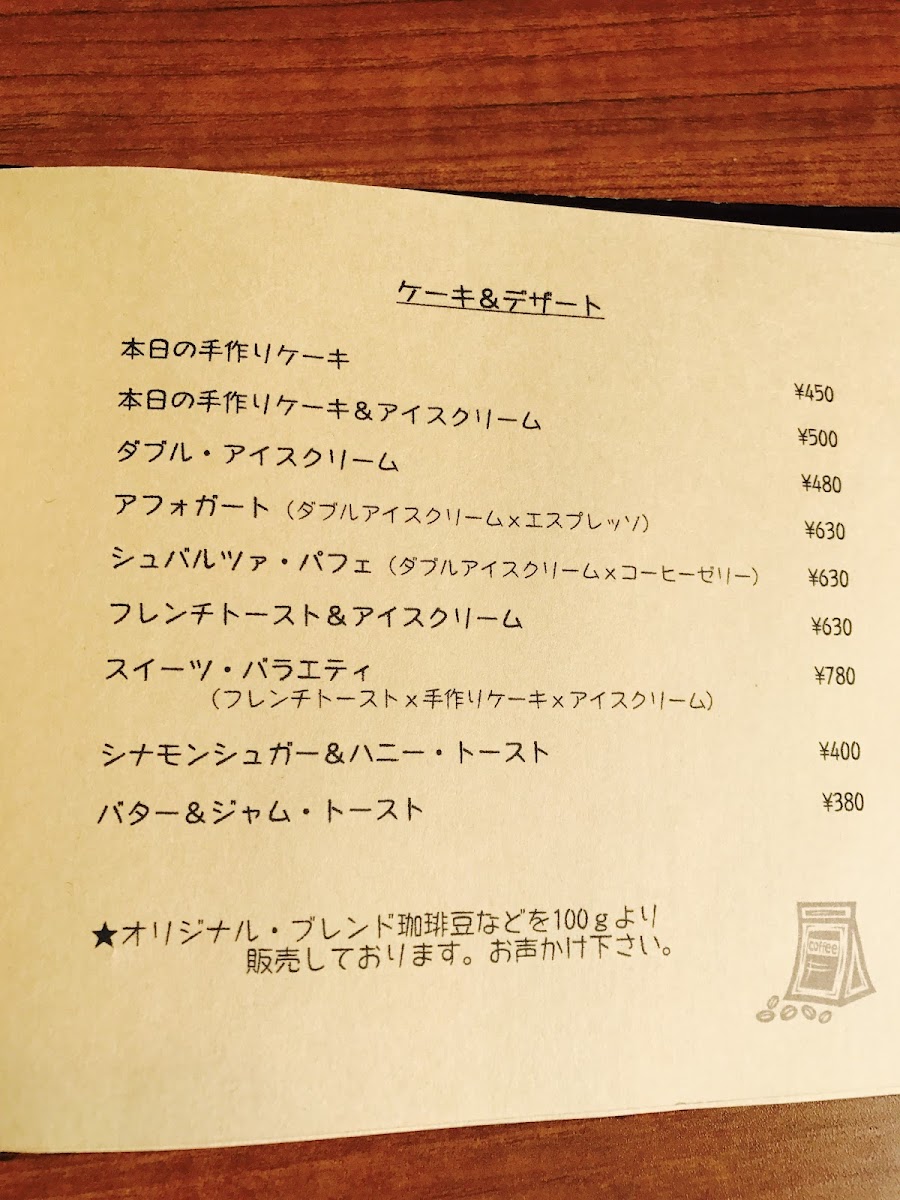 ケーキ&デザート
本日の手作りケーキ ¥450
本日の手作りケーキ&アイスクリーム ¥500
ダブル・アイスクリーム ¥480
アフォガート（ダブルアイスクリーム×エスプレッソ） ¥630
シュバルツァ・パフェ（ダブルアイスクリーム×コーヒーゼリー） ¥630
フレンチトースト&アイスクリーム ¥630
スイーツ・バラエティ ¥780
（フレンチトースト×手作りケーキ×アイスクリーム）
シナモンシュガー&ハニー・トースト ¥400
バター&ジャム・トースト ¥380
★オリジナル・ブレンド珈琲豆などを100gより
販売しております。お声かけ下さい。
coffee